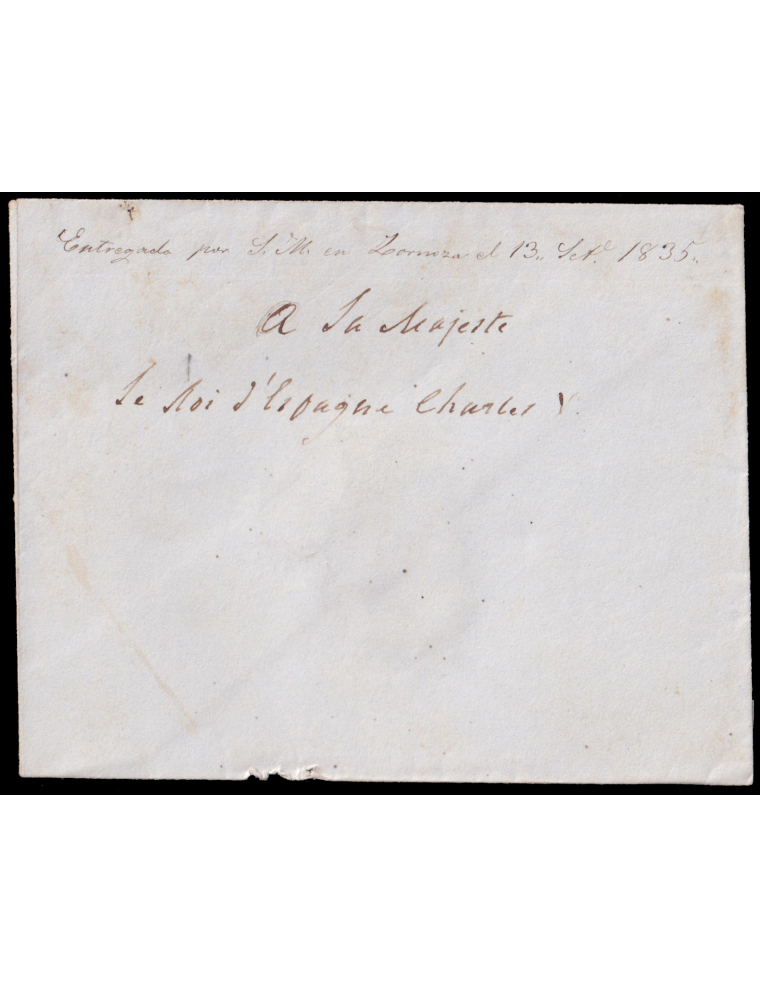 Entregado por S. M. en Zornoza el 13,, Set.e 1835,,
A Sa Majeste
Le Roi d'Espagne Charles V.